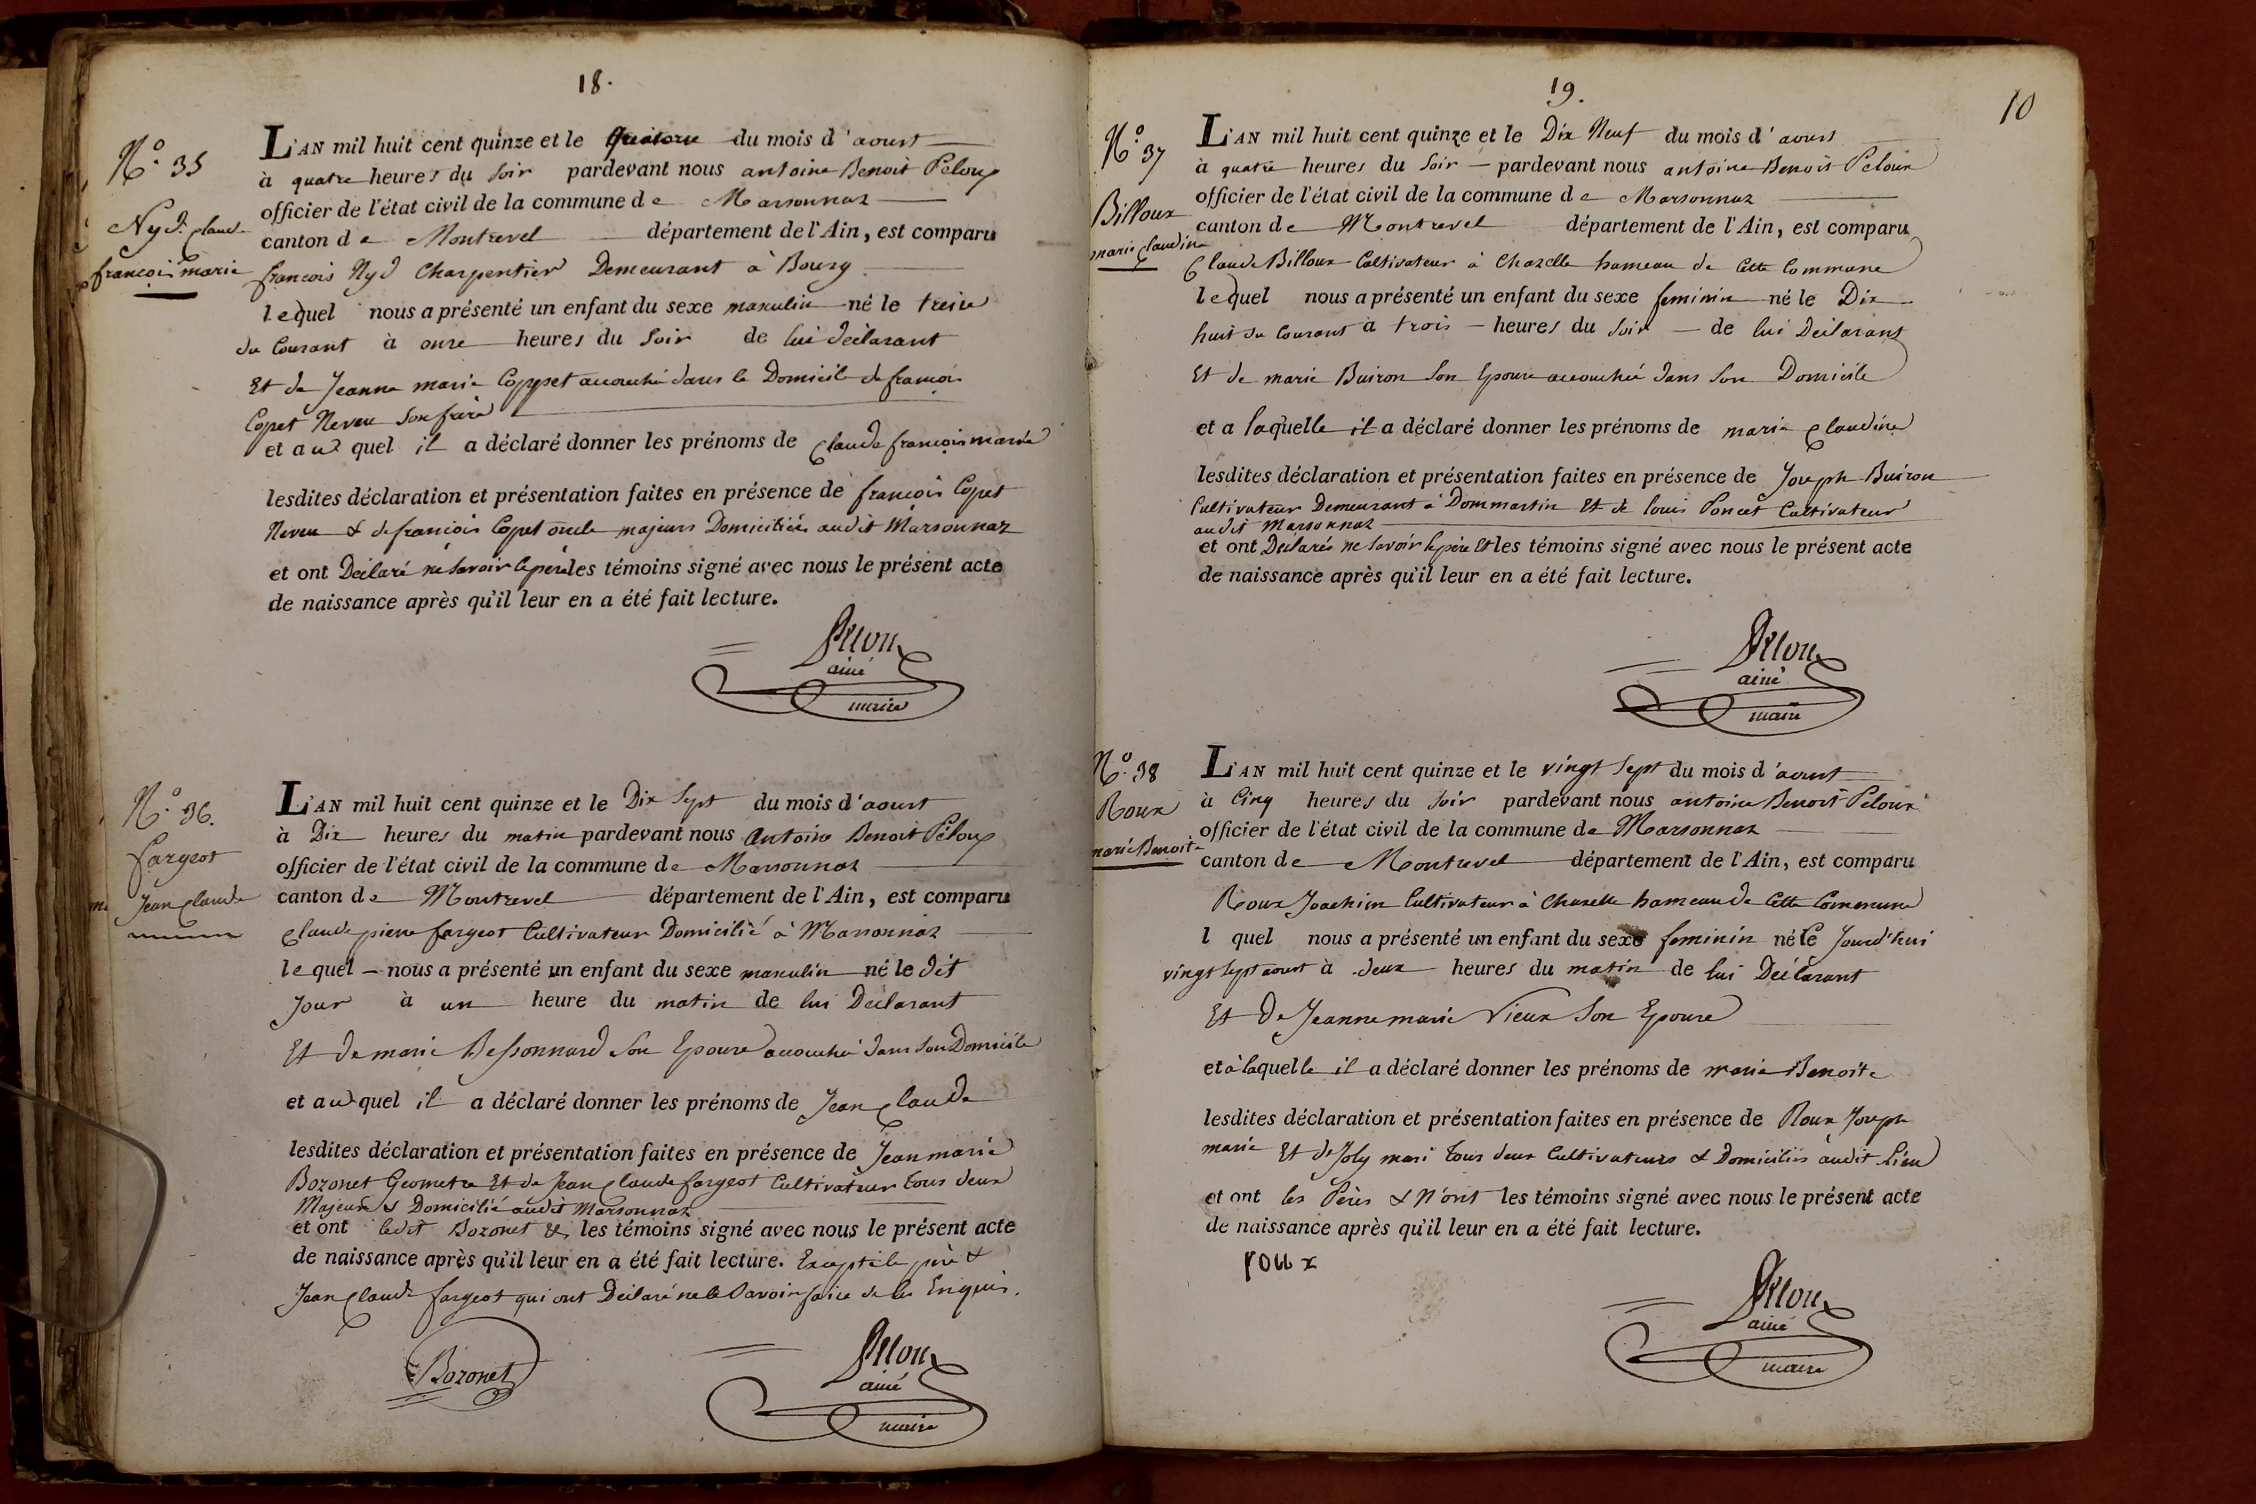 18.
N.o 35
Nyd. Claude
françois marie
L'AN mil huit cent quinze et le Quatorze du mois d'aoust
à quatre heures du Soir pardevant nous antoine Benoit Peloux
officier de l'état civil de la commune de Marsonnaz
canton de Montrevel département de l'Ain, est comparu
françois Nyd Charpentier Demeurant à Bourg
lequel nous a présenté un enfant du sexe masculin né le treize
du Courant à onze heures du Soir de lui déclarant
Et de Jeanne marie Coppet accouchée dans le Domicile de françois
Copet Neveu Son frère
et au quel il a déclaré donner les prénoms de Claude françois marie
lesdites déclaration et présentation faites en présence de françois Copet
Neveu & de françois Copet oncle majeurs Domiciliés audit Marsonnaz
et ont Déclaré ne Savoir le père les témoins signé avec nous le présent acte
de naissance après qu'il leur en a été fait lecture.
Peloux
ainé
maire
N.o 36.
fargeot
Jean Claude
L'AN mil huit cent quinze et le Dix Sept du mois d'aoust
à Dix heures du matin pardevant nous Antoine Benoit Péloux
officier de l'état civil de la commune de Marsonnaz
canton de Montrevel département de l'Ain, est comparu
Claude pierre fargeot Cultivateur Domicilié à Marsonnaz
lequel nous a présenté un enfant du sexe masculin né le dit
Jour à un heure du matin de lui Déclarant
Et de marie Bessonnard Son Epouse accouchée dans Son Domicile
et au quel il a déclaré donner les prénoms de Jean Claude
lesdites déclaration et présentation faites en présence de Jean marie
Bozonet Geometre Et de Jean Claude fargeot Cultivateur tous deux
Majeurs Domicilié audit Marsonnaz
et ont ledit Bozonet & les témoins signé avec nous le présent acte
de naissance après qu'il leur en a été fait lecture. Excepté le père &
Jean Claude fargeot qui ont Déclaré ne le Savoir faire de ce Enquis.
Bozonet
Peloux
ainé
maire
19.
10
N.o 37
Billoux
marie Claudine
L'AN mil huit cent quinze et le Dix Neuf du mois d'aoust
à quatre heures du Soir pardevant nous antoine Benoit Peloux
officier de l'état civil de la commune de Marsonnaz
canton de Montrevel département de l'Ain, est comparu
Claude Billoux Cultivateur à Chazelle hameau de Cette Commune
lequel nous a présenté un enfant du sexe feminin né le Dix
huit du Courant à trois heures du Soir de lui Déclarant
Et de marie Buiron Son Epouse accouchée dans Son Domicile
et a laquelle il a déclaré donner les prénoms de marie Claudine
lesdites déclaration et présentation faites en présence de Joseph Buiron
Cultivateur Demeurant à Dommartin Et de louis Poncet Cultivateur
audit Marsonnaz
et ont Déclarés ne Savoir le père Et les témoins signé avec nous le présent acte
de naissance après qu'il leur en a été fait lecture.
Peloux
ainé
maire
N.o 38
Roux
marie Benoite
L'AN mil huit cent quinze et le vingt Sept du mois d'aoust
à Cinq heures du Soir pardevant nous antoine Benoit Peloux
officier de l'état civil de la commune de Marsonnaz
canton de Montrevel département de l'Ain, est comparu
Roux Joachim Cultivateur à Chazelle hameau de Cette Commune
l quel nous a présenté un enfant du sexe feminin né le Jourd'hui
vingt Sept aoust à deux heures du matin de lui Déclarant
Et De Jeanne marie Vieux Son Epouse
et à laquelle il a déclaré donner les prénoms de marie Benoite
lesdites déclaration et présentation faites en présence de Roux Joseph
marie Et de Joly mari tous deux Cultivateurs & Domiciliés audit Lieu
et ont les Pères & N'ont les témoins signé avec nous le présent acte
de naissance après qu'il leur en a été fait lecture.
roux
Peloux
ainé
maire